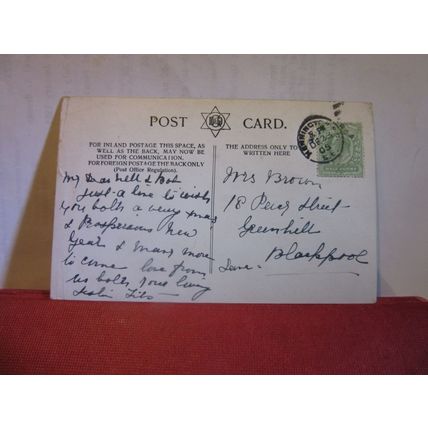 POST CARD.
FOR INLAND POSTAGE THIS SPACE, AS
WELL AS THE BACK, MAY NOW BE
USED FOR COMMUNICATION.
FOR FOREIGN POSTAGE THE BACK ONLY
(Post Office Regulation).
THE ADDRESS ONLY TO BE
WRITTEN HERE
My Dear Nell & Bob
Just a line to wish
you both a very
& Prosperous New
Year & many more
to come love from
us both your loving
Mrs Brown
18 Street
Greenhill
Blackpool